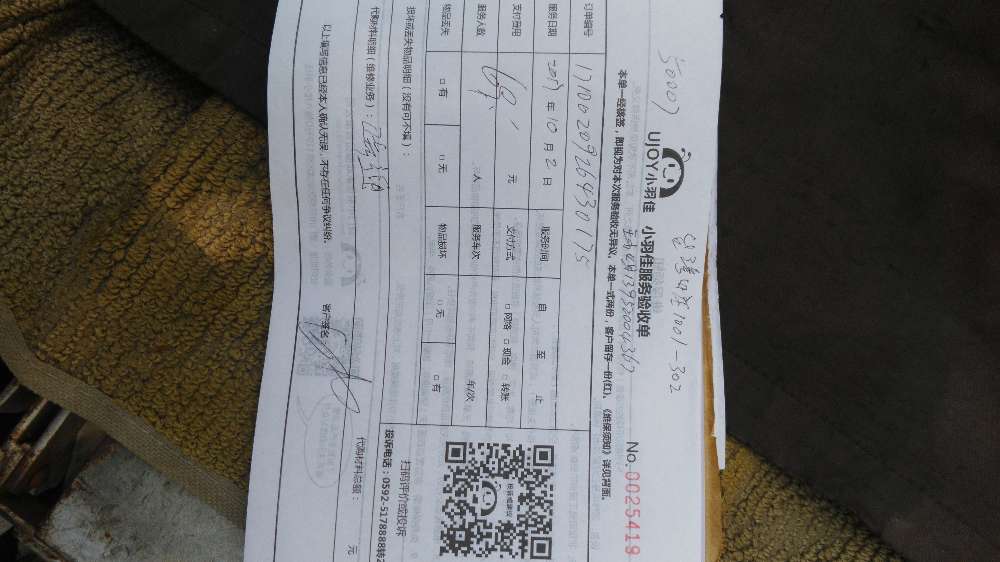 50007
UJOY小羽佳 小羽佳服务验收单
No.0025419
本单一经核签，即视为对本次服务验收无异议，本单一式两份，客户留存一份(红)，《维保须知》详见背面。
订单编号 17100209264430175
服务日期 2017年10月2日 服务时间 自 至 止
支付费用 元 支付方式 □网络 □现金 □转账
服务人数 人 服务车次 车/次
物品丢失 □有 □无 物品损坏 □无 □有
损坏或丢失物品明细（没有可不填）：
代购材料明细（维修业务）：
代购材料总额： 元
以上填写信息已经本人确认无误，不存在任何争议纠纷。 客户签名：
投诉或建议
扫码评价或投诉
投诉电话：0592-5178888转2